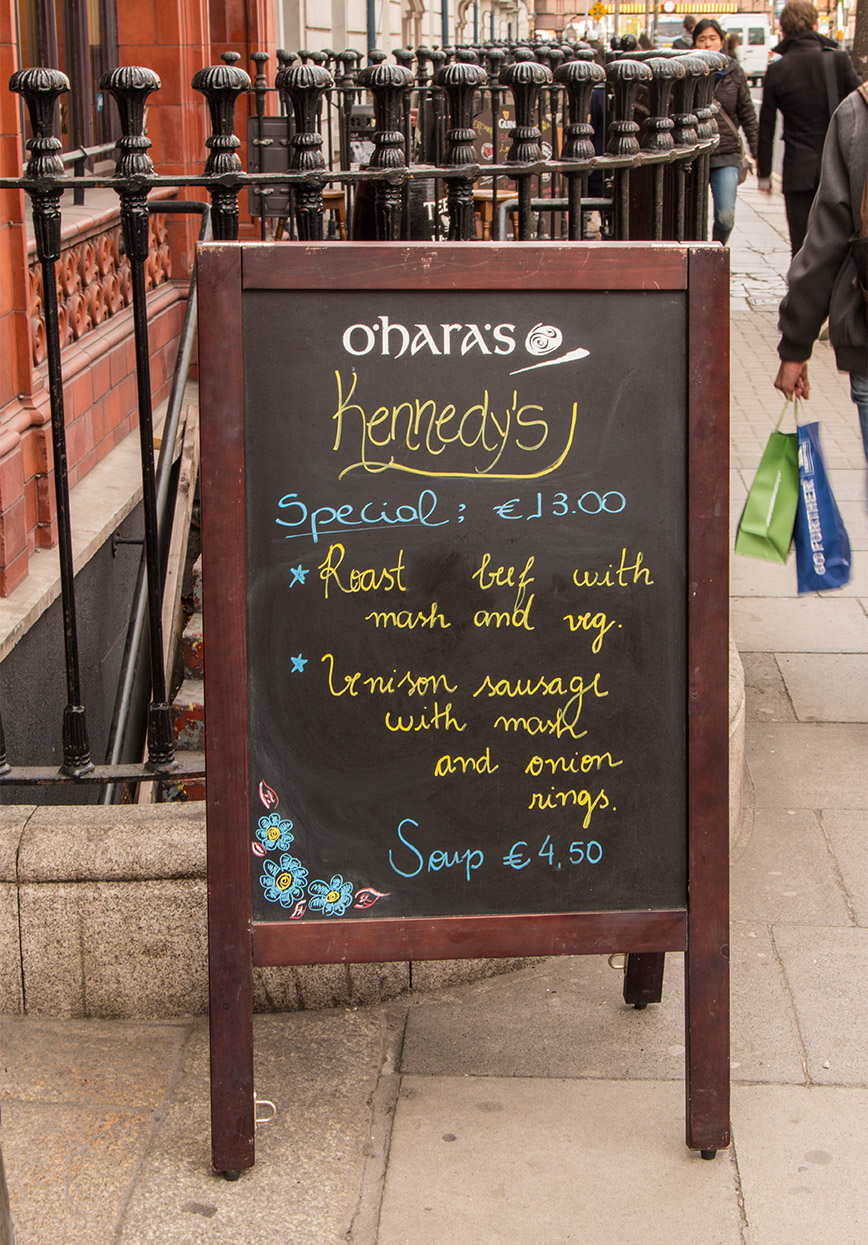 O'HARA'S
Kennedy's
Special: €13.00
Roast beef with
mash and veg.
Venison sausage
with mash
and onion
rings.
Soup €4.50
GO FURTHER